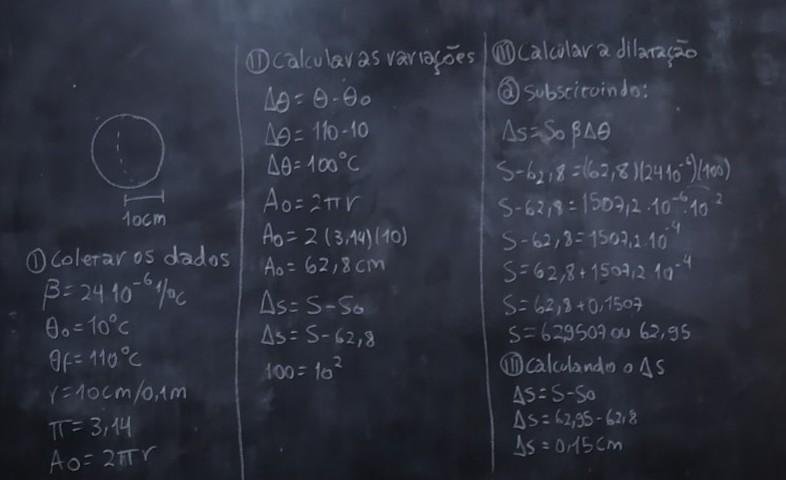 10cm
I Coletar os dados
β = 24 10⁻⁶ 1/°C
θ₀ = 10°C
θf = 110°C
r = 10cm/0,1m
π = 3,14
A₀ = 2πr
II Calcular as variações
Δθ = θ - θ₀
Δθ = 110 - 10
Δθ = 100°C
A₀ = 2πr
A₀ = 2(3,14)(10)
A₀ = 62,8cm
Δs = S - S₀
Δs = S - 62,8
100 = 10²
III Calcular a dilatação
a Substituindo:
Δs = S₀ β Δθ
S - 62,8 = (62,8)(24 10⁻⁶)(100)
S - 62,8 = 1507,2 · 10⁻⁶ · 10⁻²
S - 62,8 = 1507,2 · 10⁻⁴
S = 62,8 + 1507,2 10⁻⁴
S = 62,8 + 0,1507
S = 629507 ou 62,95
III Calculando o ΔS
Δs = S - S₀
Δs = 62,95 - 62,8
Δs = 0,15cm